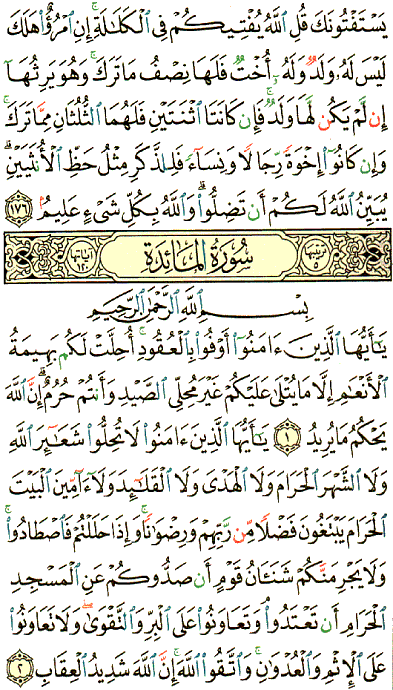 يَسْتَفْتُونَكَ قُلِ ٱللَّهُ يُفْتِيكُمْ فِي ٱلْكَلَٰلَةِ ۚ إِنِ ٱمْرُؤٌا۟ هَلَكَ
لَيْسَ لَهُۥ وَلَدٌ وَلَهُۥٓ أُخْتٌ فَلَهَا نِصْفُ مَا تَرَكَ ۚ وَهُوَ يَرِثُهَآ
إِن لَّمْ يَكُن لَّهَا وَلَدٌ ۚ فَإِن كَانَتَا ٱثْنَتَيْنِ فَلَهُمَا ٱلثُّلُثَانِ مِمَّا تَرَكَ ۚ
وَإِن كَانُوٓا۟ إِخْوَةً رِّجَالًا وَنِسَآءً فَلِلذَّكَرِ مِثْلُ حَظِّ ٱلْأُنثَيَيْنِ ۗ
يُبَيِّنُ ٱللَّهُ لَكُمْ أَن تَضِلُّوا۟ ۗ وَٱللَّهُ بِكُلِّ شَىْءٍ عَلِيمٌۢ ١٧٦
ترتيبها ٥ سُورَةُ المَائِدَةِ آياتها ١٢٠
بِسْمِ ٱللَّهِ ٱلرَّحْمَٰنِ ٱلرَّحِيمِ
يَٰٓأَيُّهَا ٱلَّذِينَ ءَامَنُوٓا۟ أَوْفُوا۟ بِٱلْعُقُودِ ۚ أُحِلَّتْ لَكُم بَهِيمَةُ
ٱلْأَنْعَٰمِ إِلَّا مَا يُتْلَىٰ عَلَيْكُمْ غَيْرَ مُحِلِّى ٱلصَّيْدِ وَأَنتُمْ حُرُمٌ ۗ إِنَّ ٱللَّهَ
يَحْكُمُ مَا يُرِيدُ ١ يَٰٓأَيُّهَا ٱلَّذِينَ ءَامَنُوا۟ لَا تُحِلُّوا۟ شَعَٰٓئِرَ ٱللَّهِ
وَلَا ٱلشَّهْرَ ٱلْحَرَامَ وَلَا ٱلْهَدْىَ وَلَا ٱلْقَلَٰٓئِدَ وَلَآ ءَآمِّينَ ٱلْبَيْتَ
ٱلْحَرَامَ يَبْتَغُونَ فَضْلًا مِّن رَّبِّهِمْ وَرِضْوَٰنًا ۚ وَإِذَا حَلَلْتُمْ فَٱصْطَادُوا۟ ۚ
وَلَا يَجْرِمَنَّكُمْ شَنَـَٔانُ قَوْمٍ أَن صَدُّوكُمْ عَنِ ٱلْمَسْجِدِ
ٱلْحَرَامِ أَن تَعْتَدُوا۟ ۘ وَتَعَاوَنُوا۟ عَلَى ٱلْبِرِّ وَٱلتَّقْوَىٰ ۖ وَلَا تَعَاوَنُوا۟
عَلَى ٱلْإِثْمِ وَٱلْعُدْوَٰنِ ۚ وَٱتَّقُوا۟ ٱللَّهَ ۖ إِنَّ ٱللَّهَ شَدِيدُ ٱلْعِقَابِ ٢